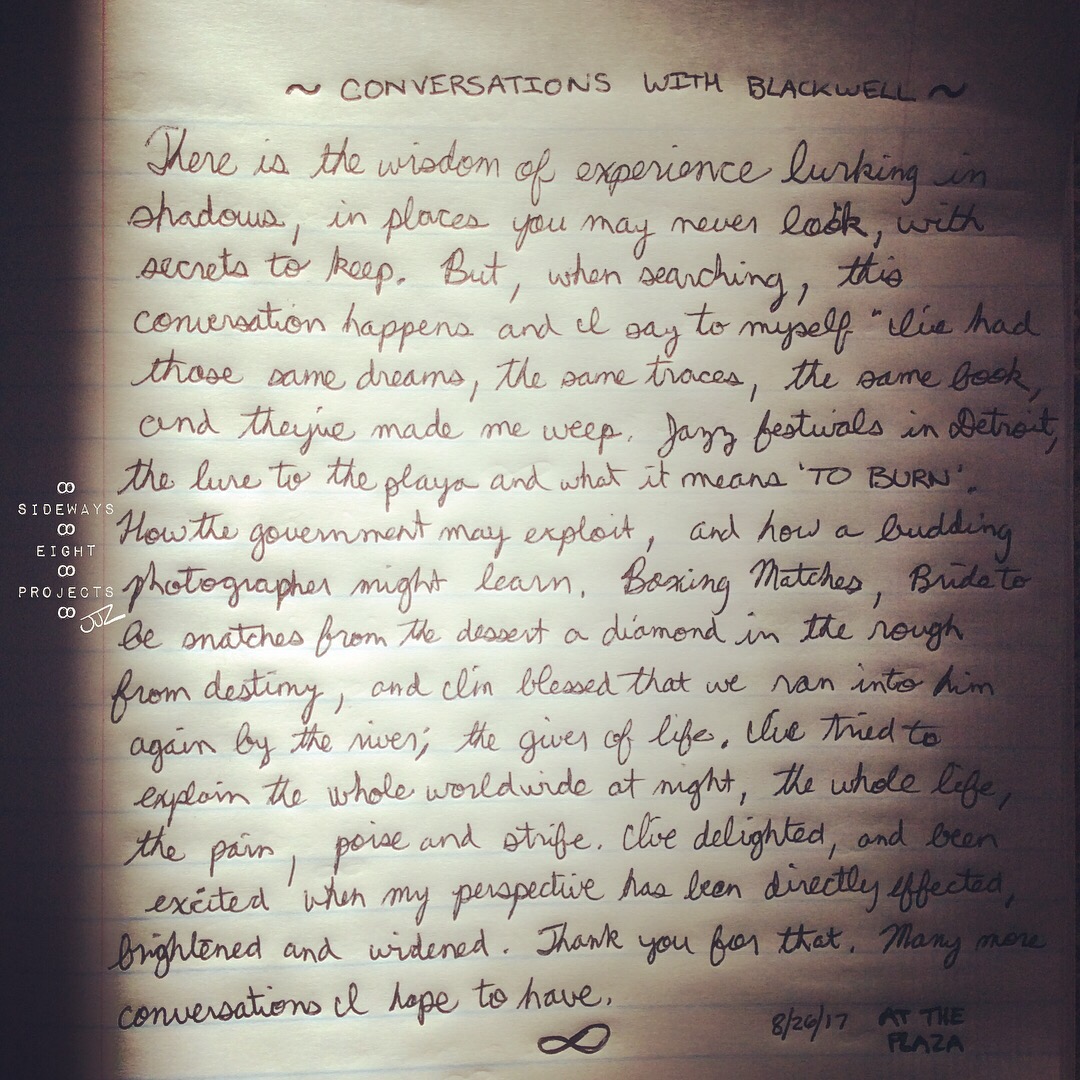 ~ CONVERSATIONS WITH BLACKWELL ~
There is the wisdom of experience lurking in
shadows, in places you may never look, with
secrets to keep. But, when searching, this
conversation happens and I say to myself "I've had
those same dreams, the same traces, the same book,
and they've made me weep. Jazz festivals in Detroit,
the lure to the playa and what it means 'TO BURN'.
How the government may exploit, and how a budding
photographer might learn. Boxing Matches, Bride to
be snatches from the dessert a diamond in the rough
from destiny, and I'm blessed that we ran into him
again by the river; the giver of life. I've tried to
explain the whole worldwide at night, the whole life,
the pain, poise and strife. I've delighted, and been
excited when my perspective has been directly effected,
brightened and widened. Thank you for that. Many more
conversations I hope to have.
∞
8/26/17 AT THE
PLAZA
8
SIDEWAYS
8
EIGHT
8
PROJECTS
8
JJZ